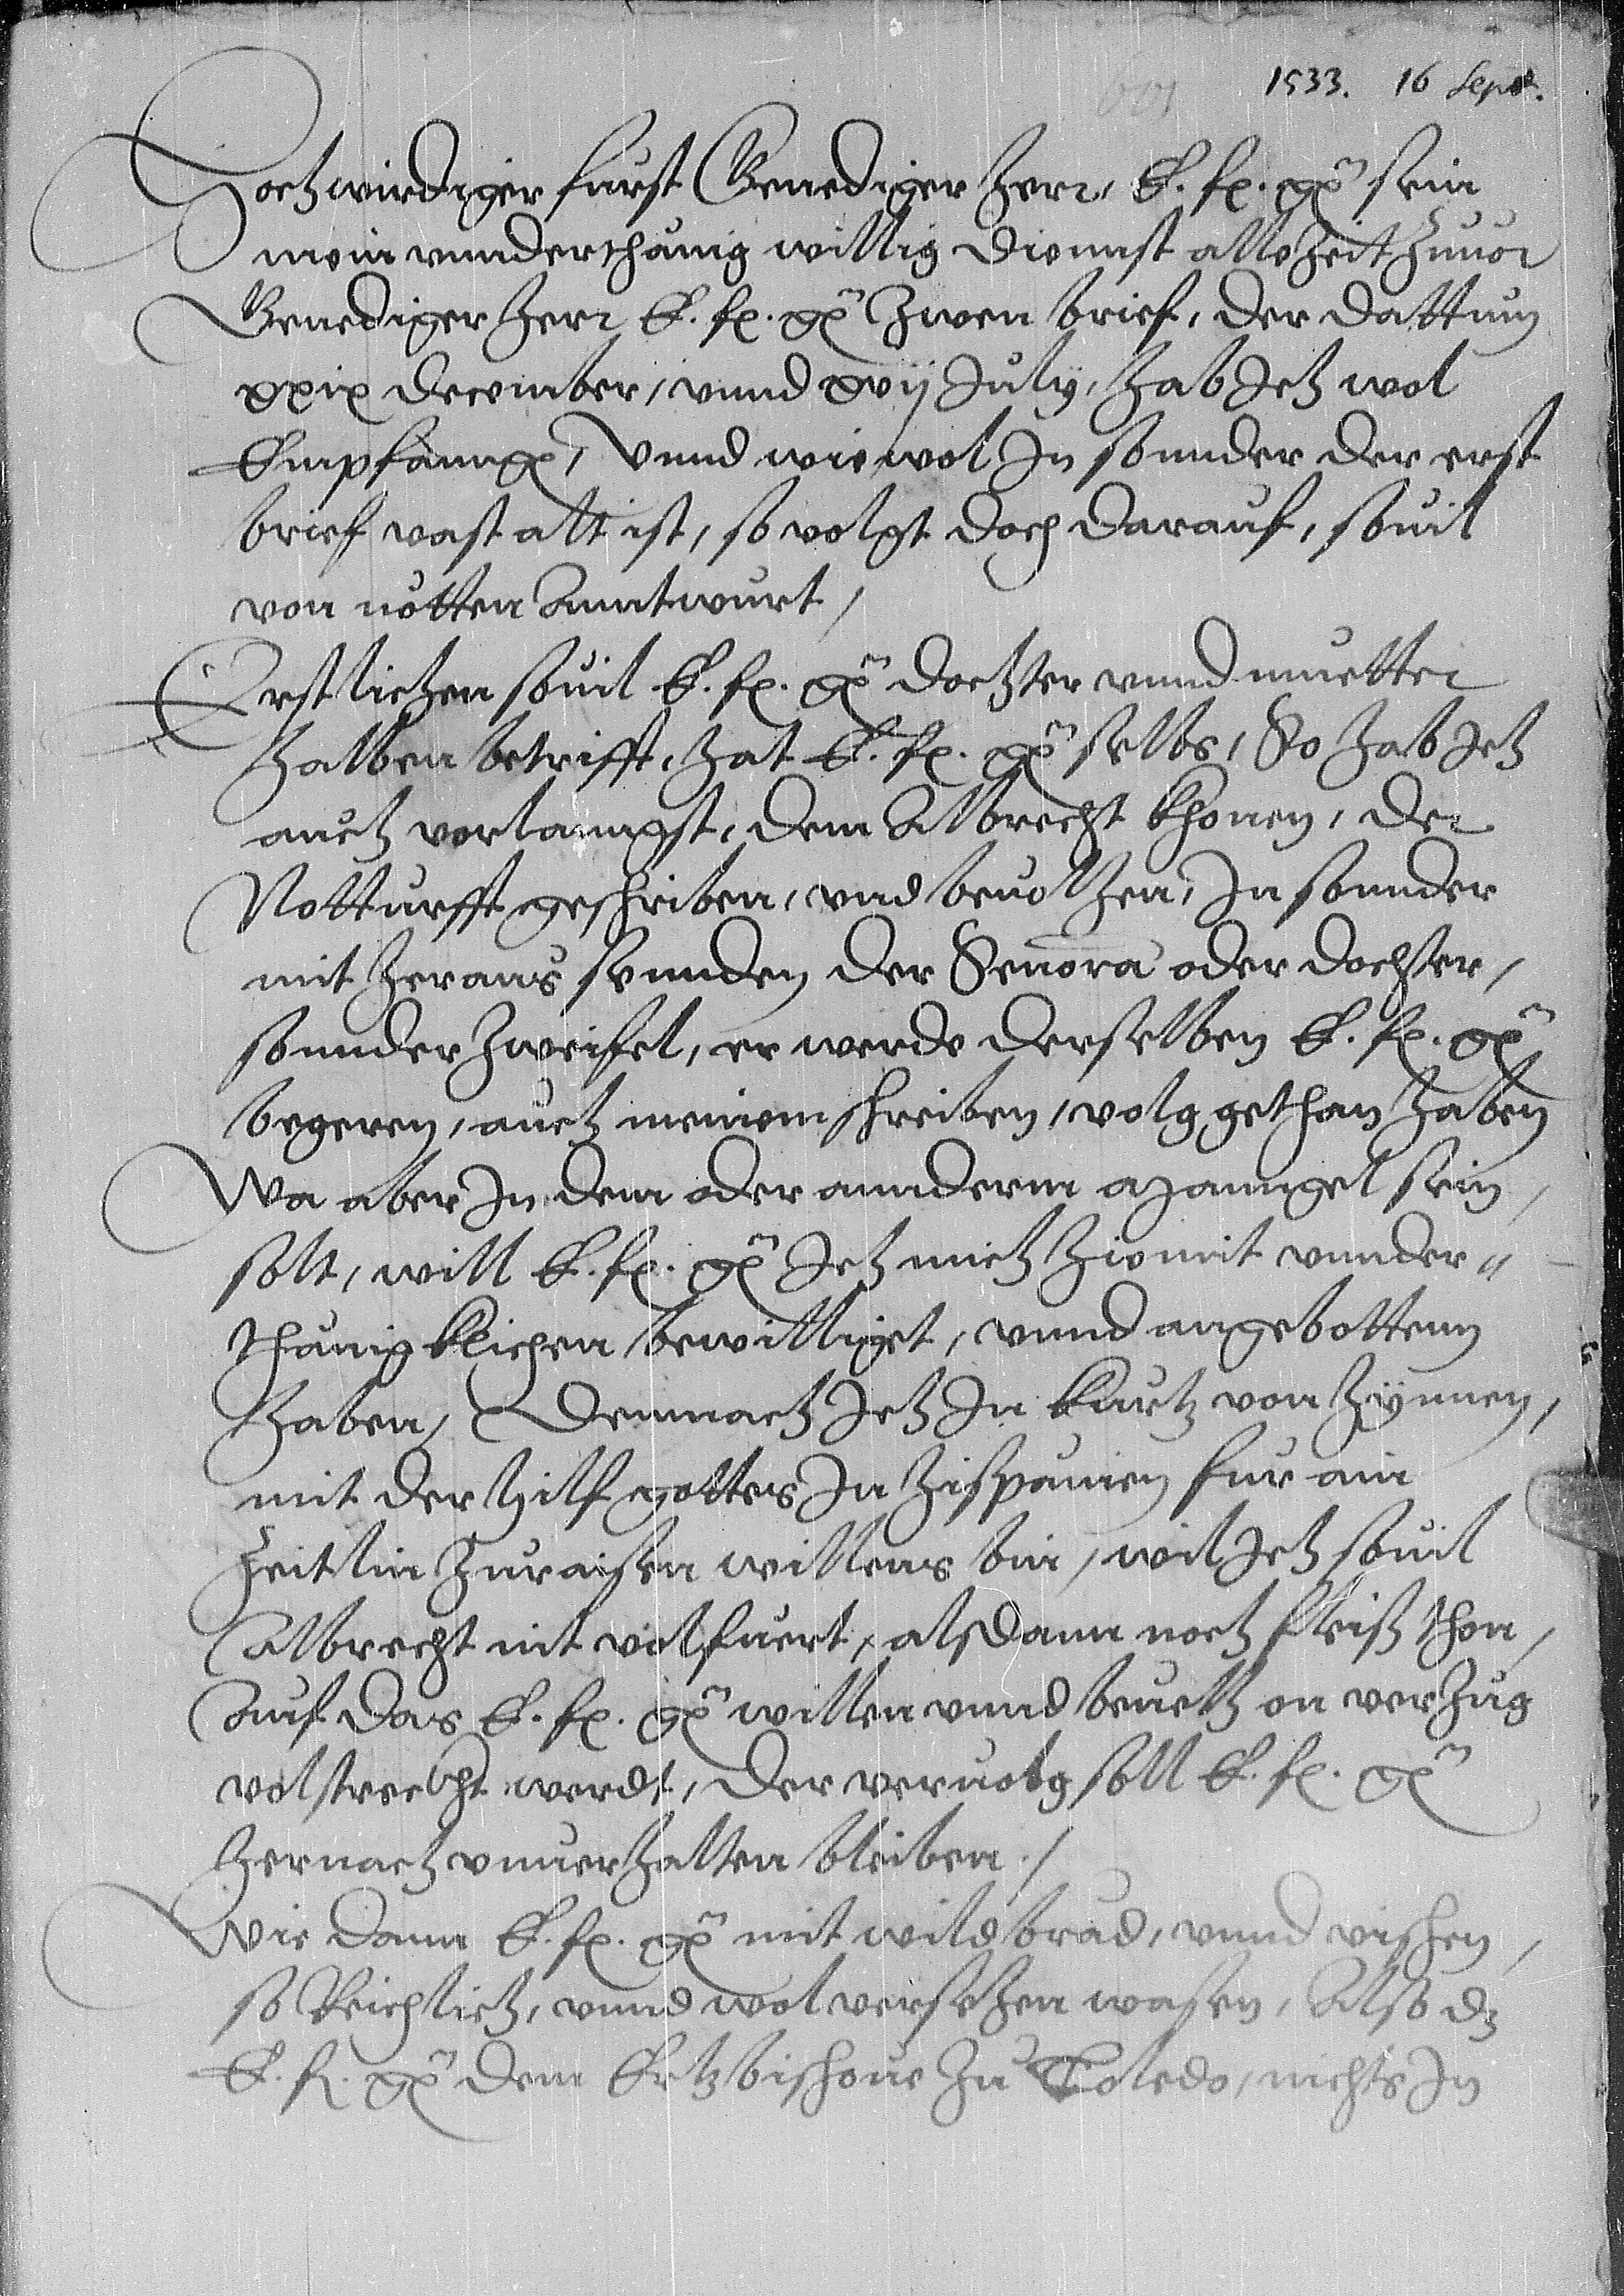 1533. 16 Sept.
Hochwirdiger furst Genediger herr, E. fr. gn̄ sein
mein vnnderthanig willig diennst alle zeit zuuor
Genediger herr E. fr. gn̄ zwen brief, der dattum
xxix december, vnnd xvij July, hab ich wol
Empfanngn, Vnnd wiewol In sonnder der erst
brief vast alt ist, so volgt doch darauf, souil
von nötten Anntwurt /
Erstlichen souil E. fr. gn̄ dochter vnnd muetter
halben betrifft, hat E. fr. gn̄ selbs, So hab ich
auch vorlanngst, dem Albrecht Khonen, der
Notturfft geschriben, vnd beuolhen, In sonnder
mit heraus sennden der Senora oder dochter,
sonnder zweifel, er werde derselben E. fr. gn̄
begeren, auch meinem schreiben, volg gethan haben
Wa aber In dem oder annderm manngel sein
solt, will E. fr. gn̄ Ich mich hiemit vnnder=
thanigklichen bewilliget, vnnd angebottenn
haben, Demnach ich In kurtz von hynnen,
mit der hilf gottes In hispanien fur ain
zeitlin zuraisen willens bin, wil Ich souil
Albrecht nit volfuert, alsdann noch fleiß thon,
Auf das E. fr. gn̄ willen vnnd beuelh on verzug
volstreckht werdt, Der veruolg soll E. fr. gn̄
hernach vnuerhalten bleiben. /
Wie dann E. fr. gn̄ mit wildbrad, vnnd vischen,
so Reichlich, vnnd wol versehen wasen, Also dz
E. fr. gn̄ dem Ertzbischoue zu Toledo, nichts In